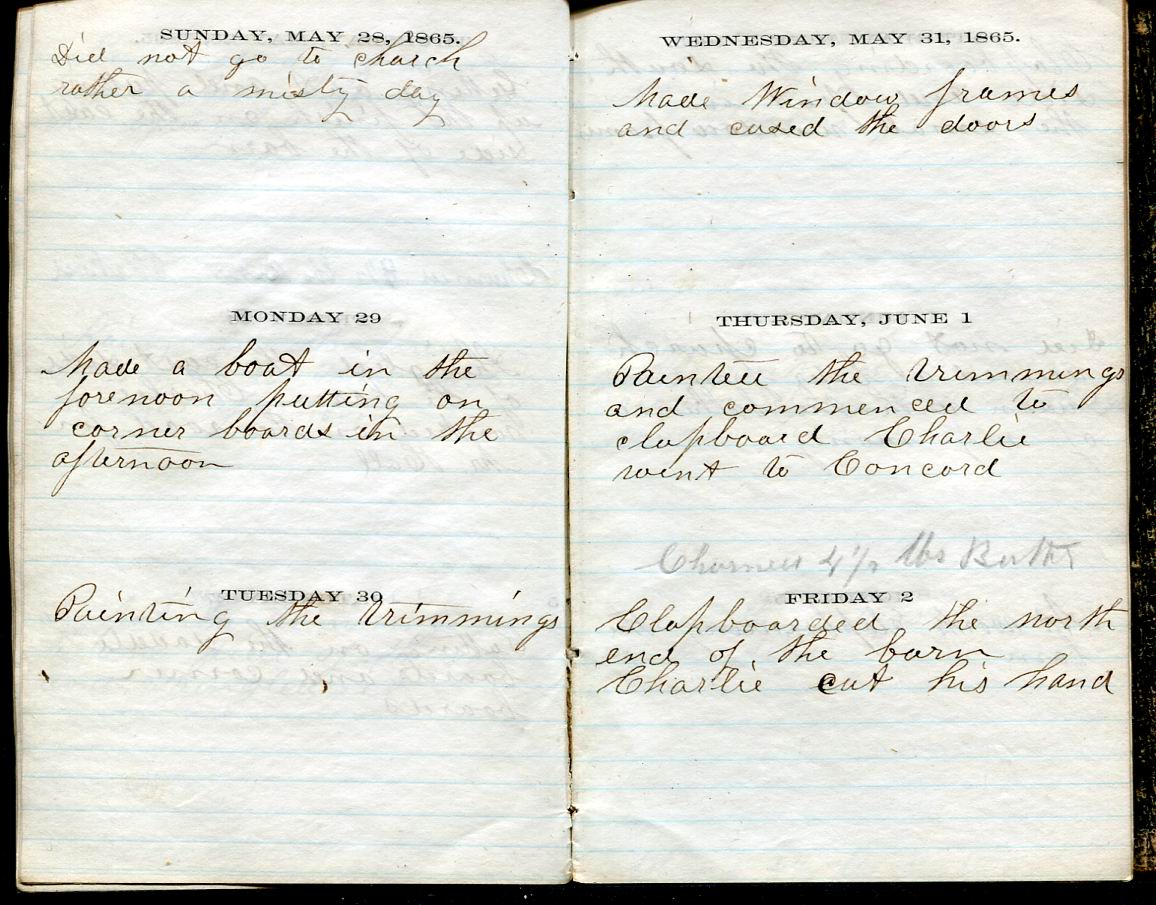 SUNDAY, MAY 28, 1865.
Did not go to church
rather a misty day
MONDAY 29
Made a boat in the
forenoon putting on
corner boards in the
afternoon
TUESDAY 30
Painting the trimmings
WEDNESDAY, MAY 31, 1865.
Made Window frames
and cased the doors
THURSDAY, JUNE 1
Painted the trimmings
and commenced to
clapboard Charlie
went to Concord
lbs
FRIDAY 2
Clapboarded the north
end of the barn
Charlie cut his hand